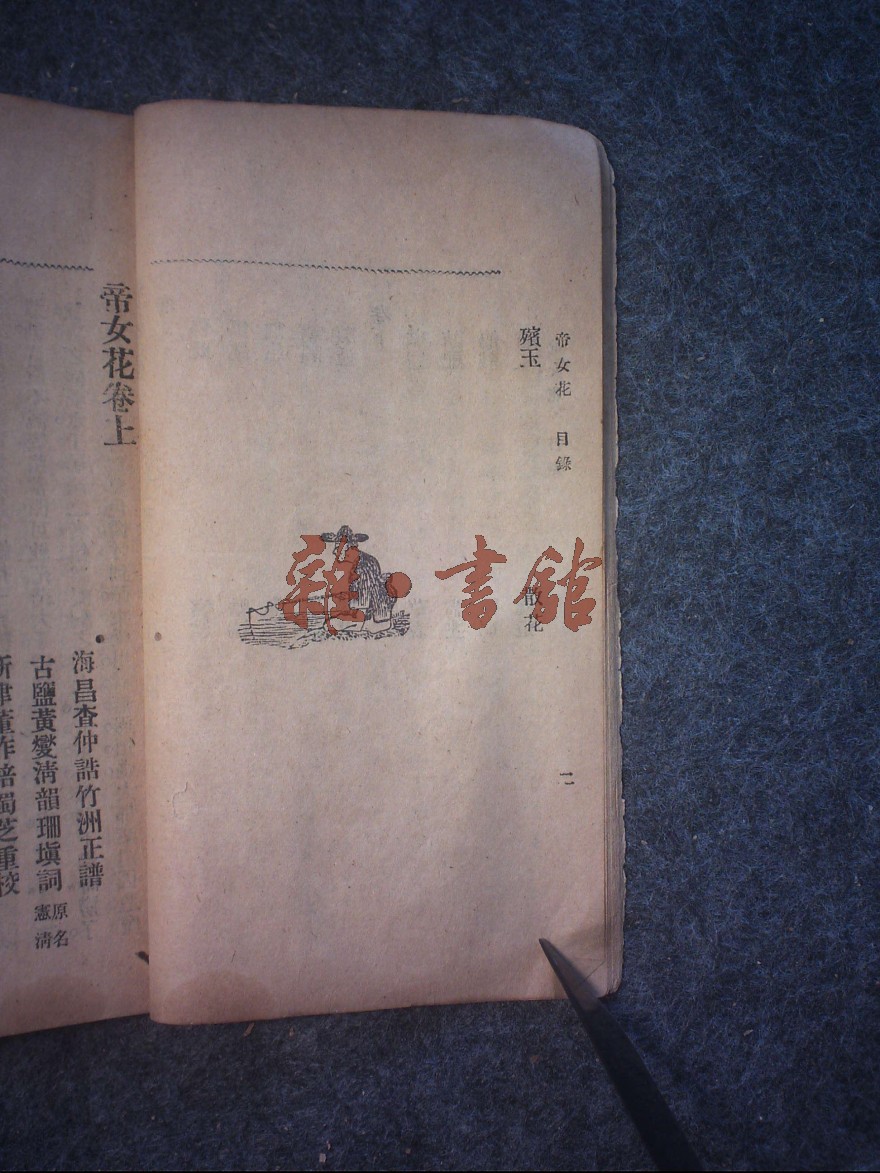 帝女花 目錄
二
殯玉
散花
雜·書館
帝女花卷上
海昌查仲誥竹洲正譜
古鹽黃燮清韻珊塡詞 原名憲清
新津董作培蜀芝重校